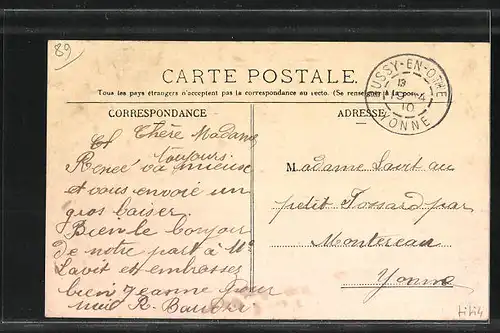 89
CARTE POSTALE.
Tous les pays étrangers n'acceptent pas la correspondance au recto. (Se renseigner à la poste
CORRESPONDANCE
ADRESSE
BUSSY-EN-OTHE
YONNE
10
Chère Madame
toujours
Renée va mieux
et vous envoie un
gros baiser.
Bien le bonjour
de notre part à Mr
Lavit et embrasses
bien Jeanne pour
R.
Madame Lavit au
petit Fossard par
Montereau
Yonne